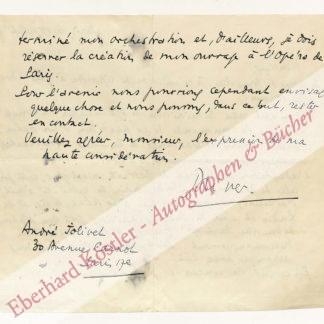 terminé mon orchestration et, d'ailleurs, je dois
réserver la création de mon ouvrage à l'Opéra de
Paris.
Pour l'avenir nous pourrions cependant envisag
quelque chose et nous pouvons, dans ce but, rester
en contact.
Veuillez agréer, Monsieur, l'expression de ma
haute considération.
André Jolivet
30 Avenue Carnot
Paris 17e
Eberhard Köstler - Autographen & Bücher